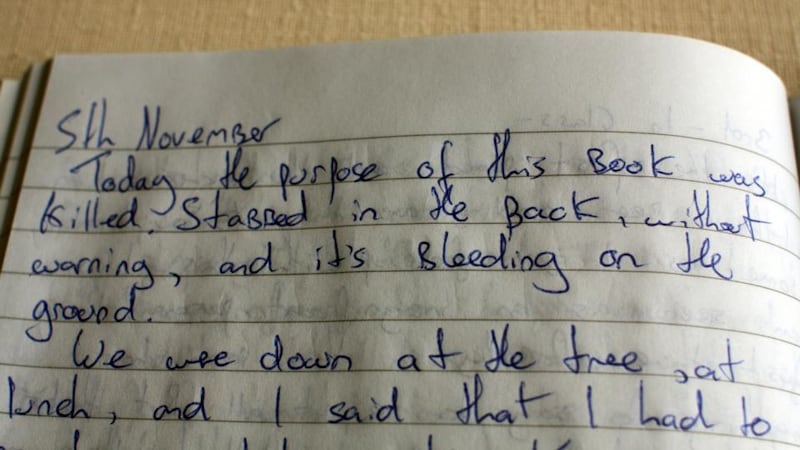 5th November
Today the purpose of this Book was
killed. Stabbed in the Back, without
warning, and it's Bleeding on the
ground.
We were down at the tree, at
lunch, and I said that I had to